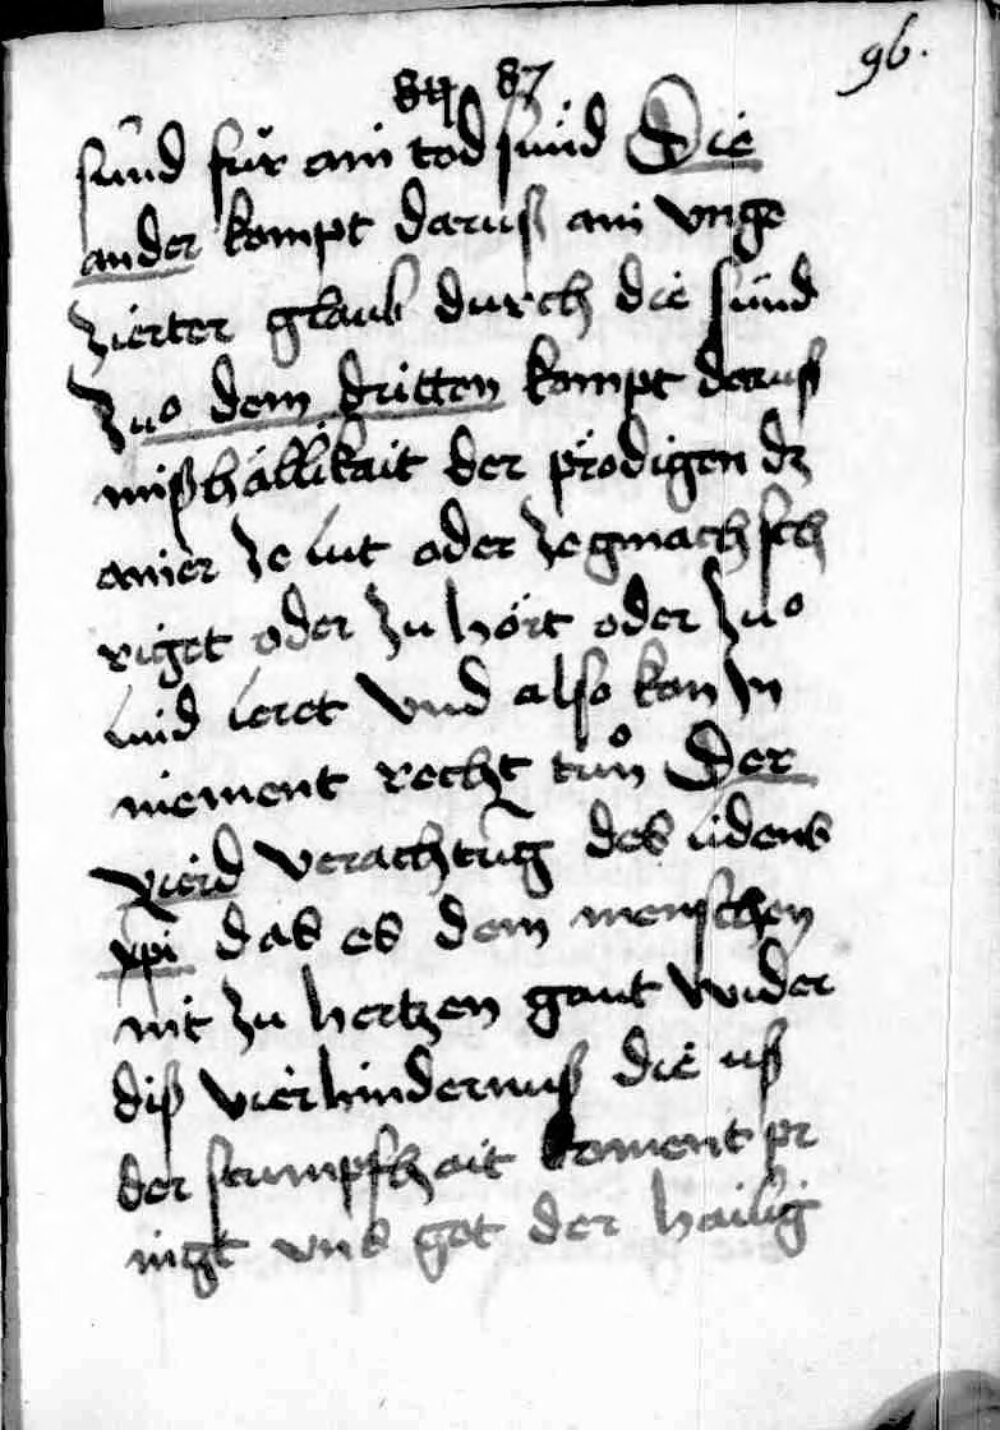 96.
84 87
sünd für ain tod sünd Die
ander kompt daruß ain vnge
zierter glaub durch die sünd
Zuo dem dritten kompt daruß
mißhällikait der prödigen dz
ainer ze lut oder ze gmach sch
riget oder zu hört oder zuo
luid leret vnd also kan in
niement recht tůn Der
vierd verachtūg des lidens
xpi das es dem menschen
nit zu hertzen gaut wider
diß vier hindernuß die uß
der stumpfhait koment pr
nigt vns got der hailig